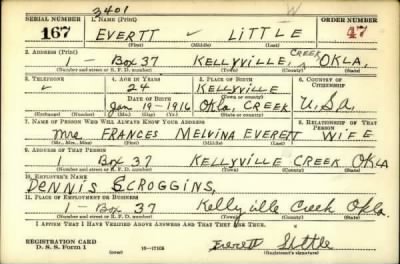 3401 W
SERIAL NUMBER 1. NAME (Print) ORDER NUMBER
167 EVERTT ✓ LITTLE 47
(First) (Middle) (Last)
2. ADDRESS (Print)
— BOX 37 KELLYVILLE, CREEK OKLA.
(Number and street or R. F. D. number) (Town) (County) (State)
3. TELEPHONE 4. AGE IN YEARS 5. PLACE OF BIRTH 6. COUNTRY OF CITIZENSHIP
✓ 24 KELLYVILLE
DATE OF BIRTH (Town or county)
Jan 19-1916 Okla, CREEK U.S.A.
(Mo.) (Day) (Yr.) (State or country)
7. NAME OF PERSON WHO WILL ALWAYS KNOW YOUR ADDRESS 8. RELATIONSHIP OF THAT PERSON
Mrs FRANCES MELVINA EVERETT WIFE
(Mr., Mrs., Miss) (First) (Middle) (Last)
9. ADDRESS OF THAT PERSON
1 BOX 37 KELLYVILLE CREEK OKLA
(Number and street or R. F. D. number) (Town) (County) (State)
10. EMPLOYER'S NAME
DENNIS SCROGGINS,
11. PLACE OF EMPLOYMENT OR BUSINESS
1 - BOX 37 Kellyville Creek Okla
(Number and street or R. F. D. number) (Town) (County) (State)
I AFFIRM THAT I HAVE VERIFIED ABOVE ANSWERS AND THAT THEY ARE TRUE.
REGISTRATION CARD
D. S. S. Form 1 16—17105 Everett Little
(Registrant's signature)